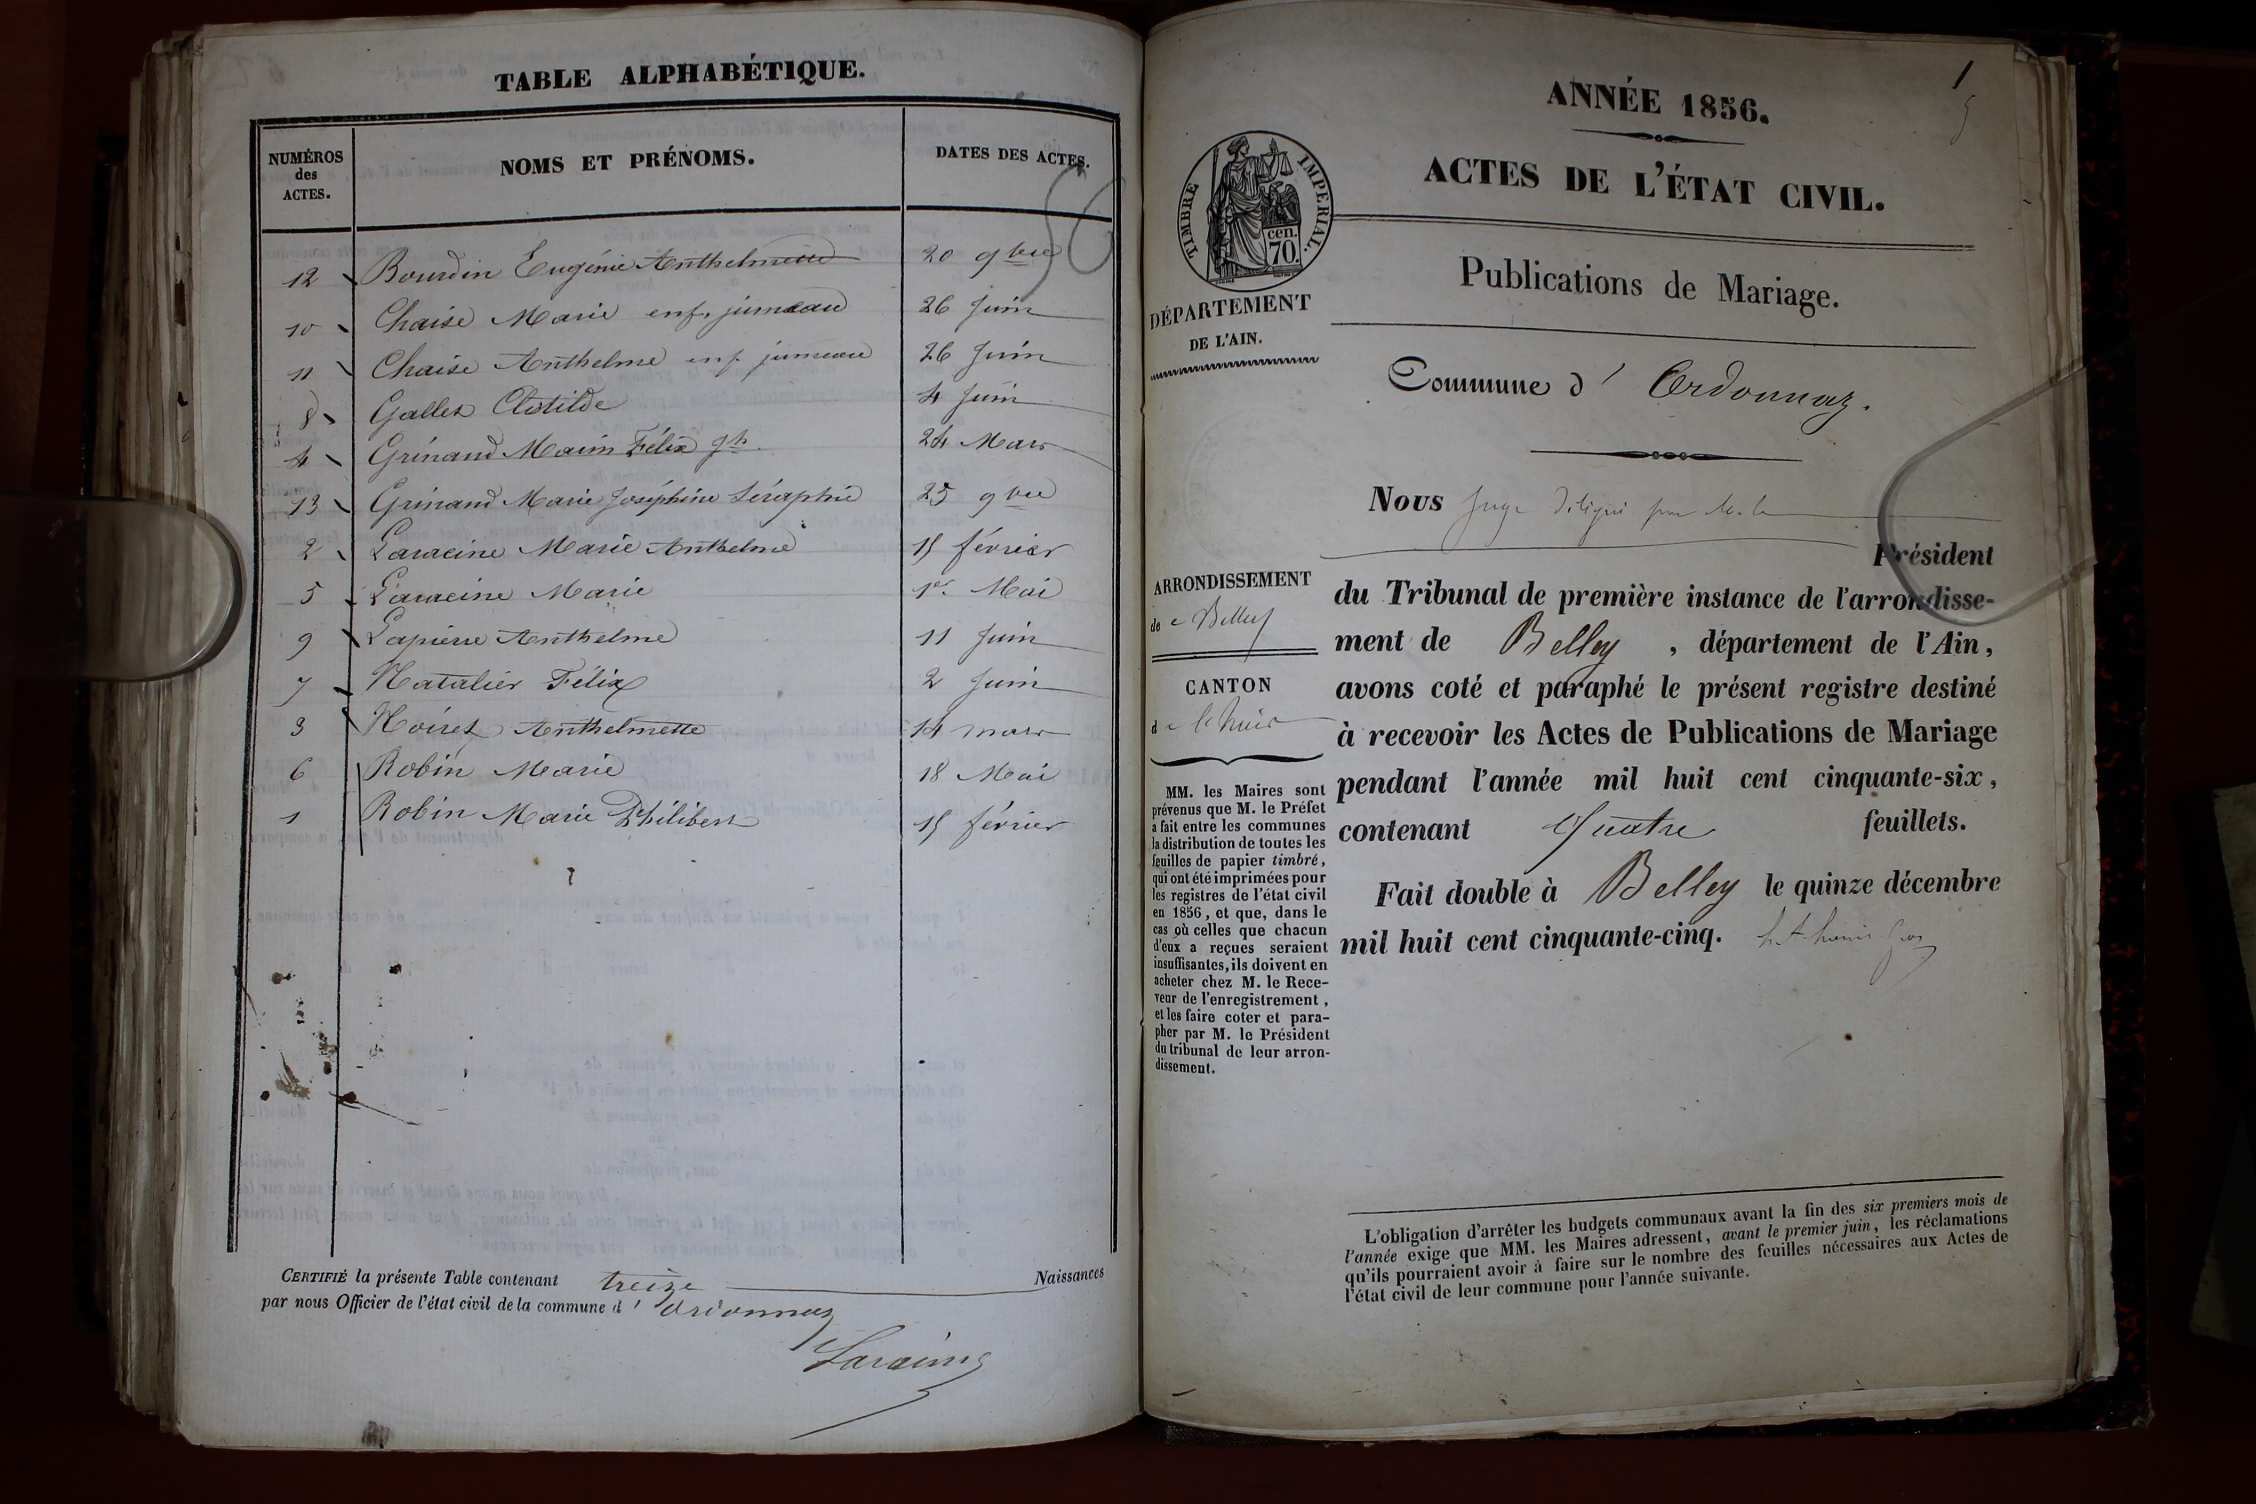 TABLE ALPHABÉTIQUE.
NUMÉROS des ACTES. NOMS ET PRÉNOMS. DATES DES ACTES.
12 Bourdin Eugénie Anthelmette 20 9bre
10 Chaise Marie enf. jumeau 26 Juin
11 Chaise Anthelme enf. jumeau 26 Juin
8 Gallet Clotilde 4 Juin
4 Grinand Marin Félix 24 Mars
13 Grinand Marie Joséphine Séraphie 25 9bre
2 Laracine Marie Anthelme 15 février
5 Laracine Marie 1er Mai
9 Lapierre Anthelme 11 Juin
7 Natalier Félix 2 Juin
3 Noiret Anthelmette 14 mars
6 Robin Marie 18 Mai
1 Robin Marie Philibert 15 février
CERTIFIÉ la présente Table contenant treize Naissances
par nous Officier de l'état civil de la commune d' ordonnaz
Laracine
1
5
ANNÉE 1856.
ACTES DE L'ÉTAT CIVIL.
TIMBRE IMPÉRIAL.
cen.
70.
Publications de Mariage.
DÉPARTEMENT
DE L'AIN.
Commune d' Ordonnaz.
Nous Juge délégué par M. le
Président
du Tribunal de première instance de l'arrondisse-
ment de Belley, département de l'Ain,
avons coté et paraphé le présent registre destiné
à recevoir les Actes de Publications de Mariage
pendant l'année mil huit cent cinquante-six,
contenant Quatre feuillets.
Fait double à Belley le quinze décembre
mil huit cent cinquante-cinq.
ARRONDISSEMENT
de Belley
CANTON
de lhuis
MM. les Maires sont
prévenus que M. le Préfet
a fait entre les communes
la distribution de toutes les
feuilles de papier timbré,
qui ont été imprimées pour
les registres de l'état civil
en 1856, et que, dans le
cas où celles que chacun
d'eux a reçues seraient
insuffisantes, ils doivent en
acheter chez M. le Rece-
veur de l'enregistrement,
et les faire coter et para-
pher par M. le Président
du tribunal de leur arron-
dissement.
L'obligation d'arrêter les budgets communaux avant la fin des six premiers mois de
l'année exige que MM. les Maires adressent, avant le premier juin, les réclamations
qu'ils pourraient avoir à faire sur le nombre des feuilles nécessaires aux Actes de
l'état civil de leur commune pour l'année suivante.